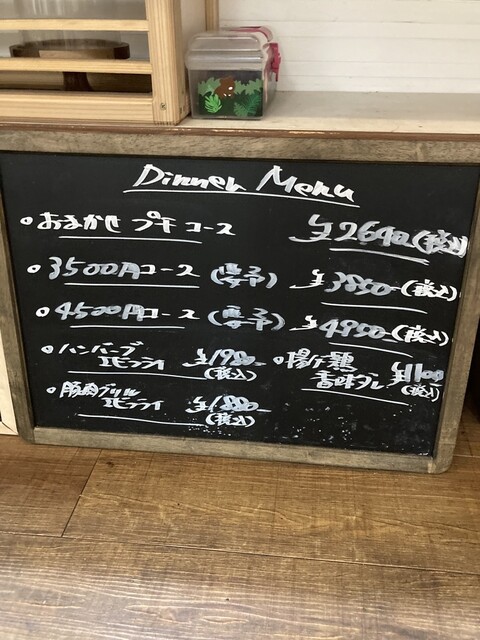 Dinner Menu
おまかせ プチコース ¥2640(税込)
3500円コース (要予) ¥3850(税込)
4500円コース (要予) ¥4950(税込)
ハンバーグ
エビフライ ¥1980(税込)
揚げ鶏
香味ダレ ¥1100(税込)
豚肉グリル
エビフライ ¥1880(税込)